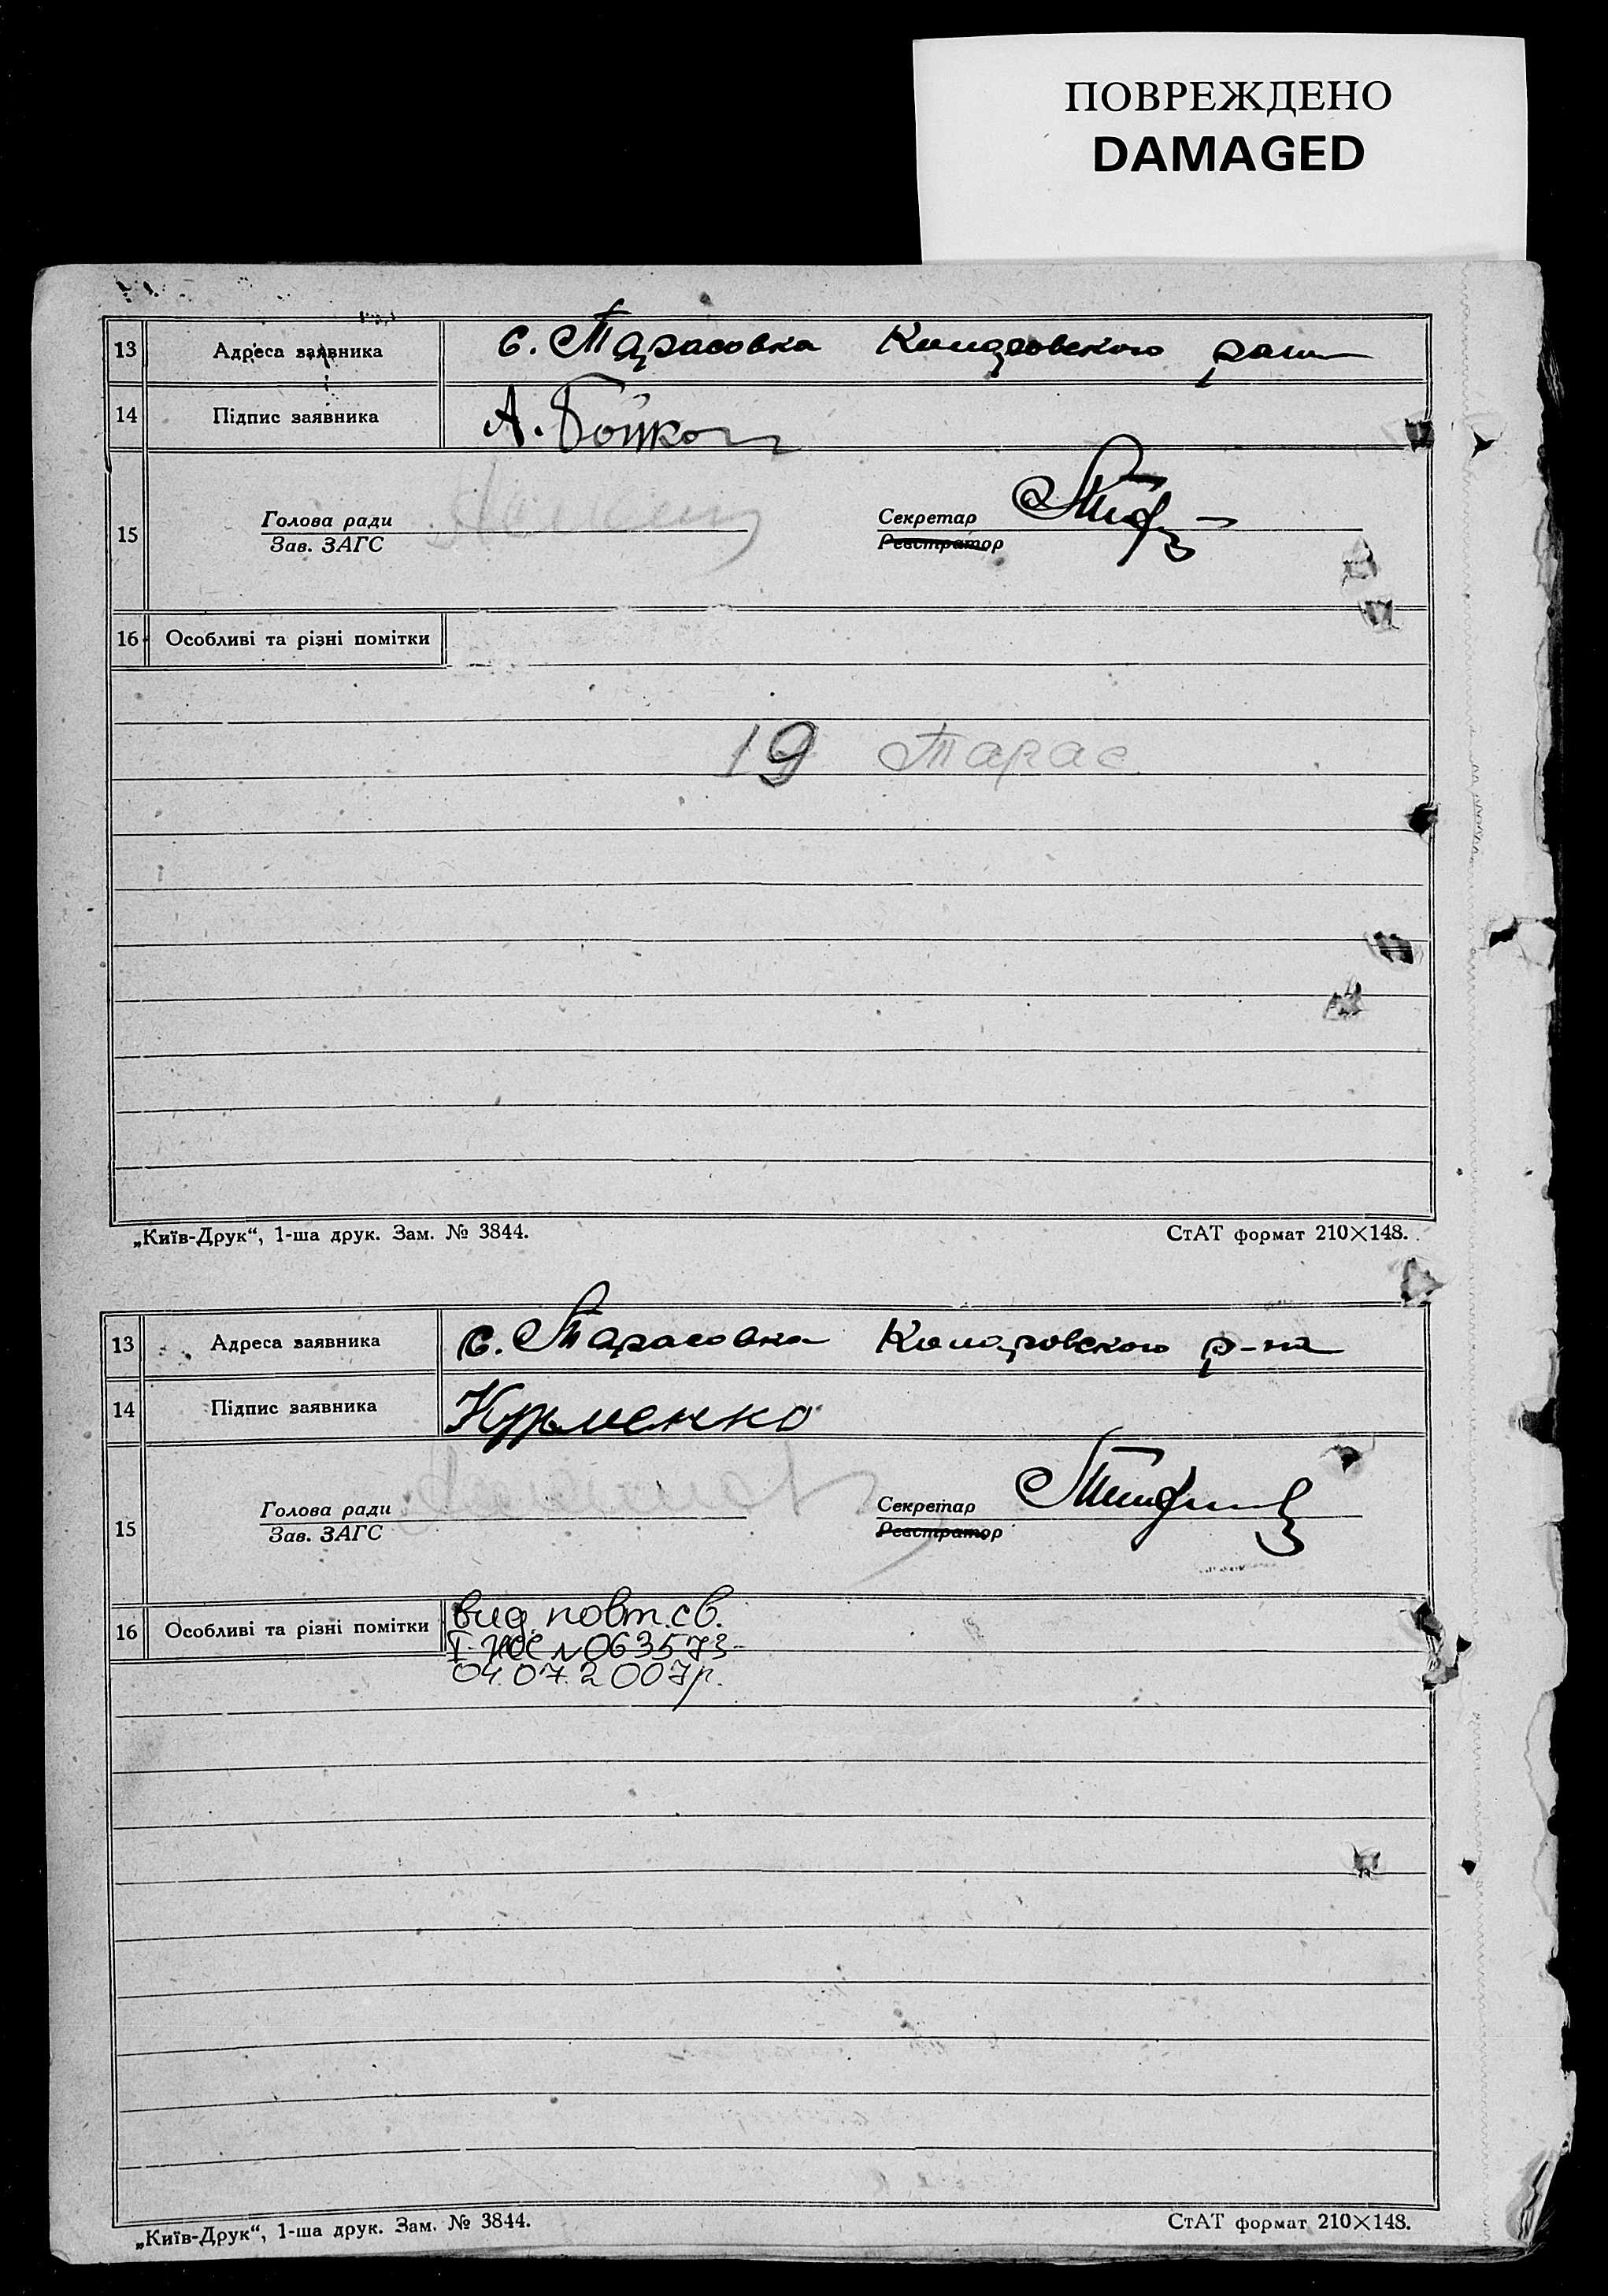 ПОВРЕЖДЕНО
DAMAGED
13 Адреса заявника с. Тарасовка
14 Підпис заявника А. Бойко
15 Голова ради Секретар
Зав. ЗАГС Реєстратор
16 Особливі та різні помітки
19 Тарас
„Київ-Друк“, 1-ша друк. Зам. № 3844. СтАТ формат 210×148.
13 Адреса заявника с. Тарасовка р-на
14 Підпис заявника
15 Голова ради Секретар
Зав. ЗАГС Реєстратор
16 Особливі та різні помітки вид. повт. св.
№ 063573
04.07.2007р.
„Київ-Друк“, 1-ша друк. Зам. № 3844. СтАТ формат 210×148.